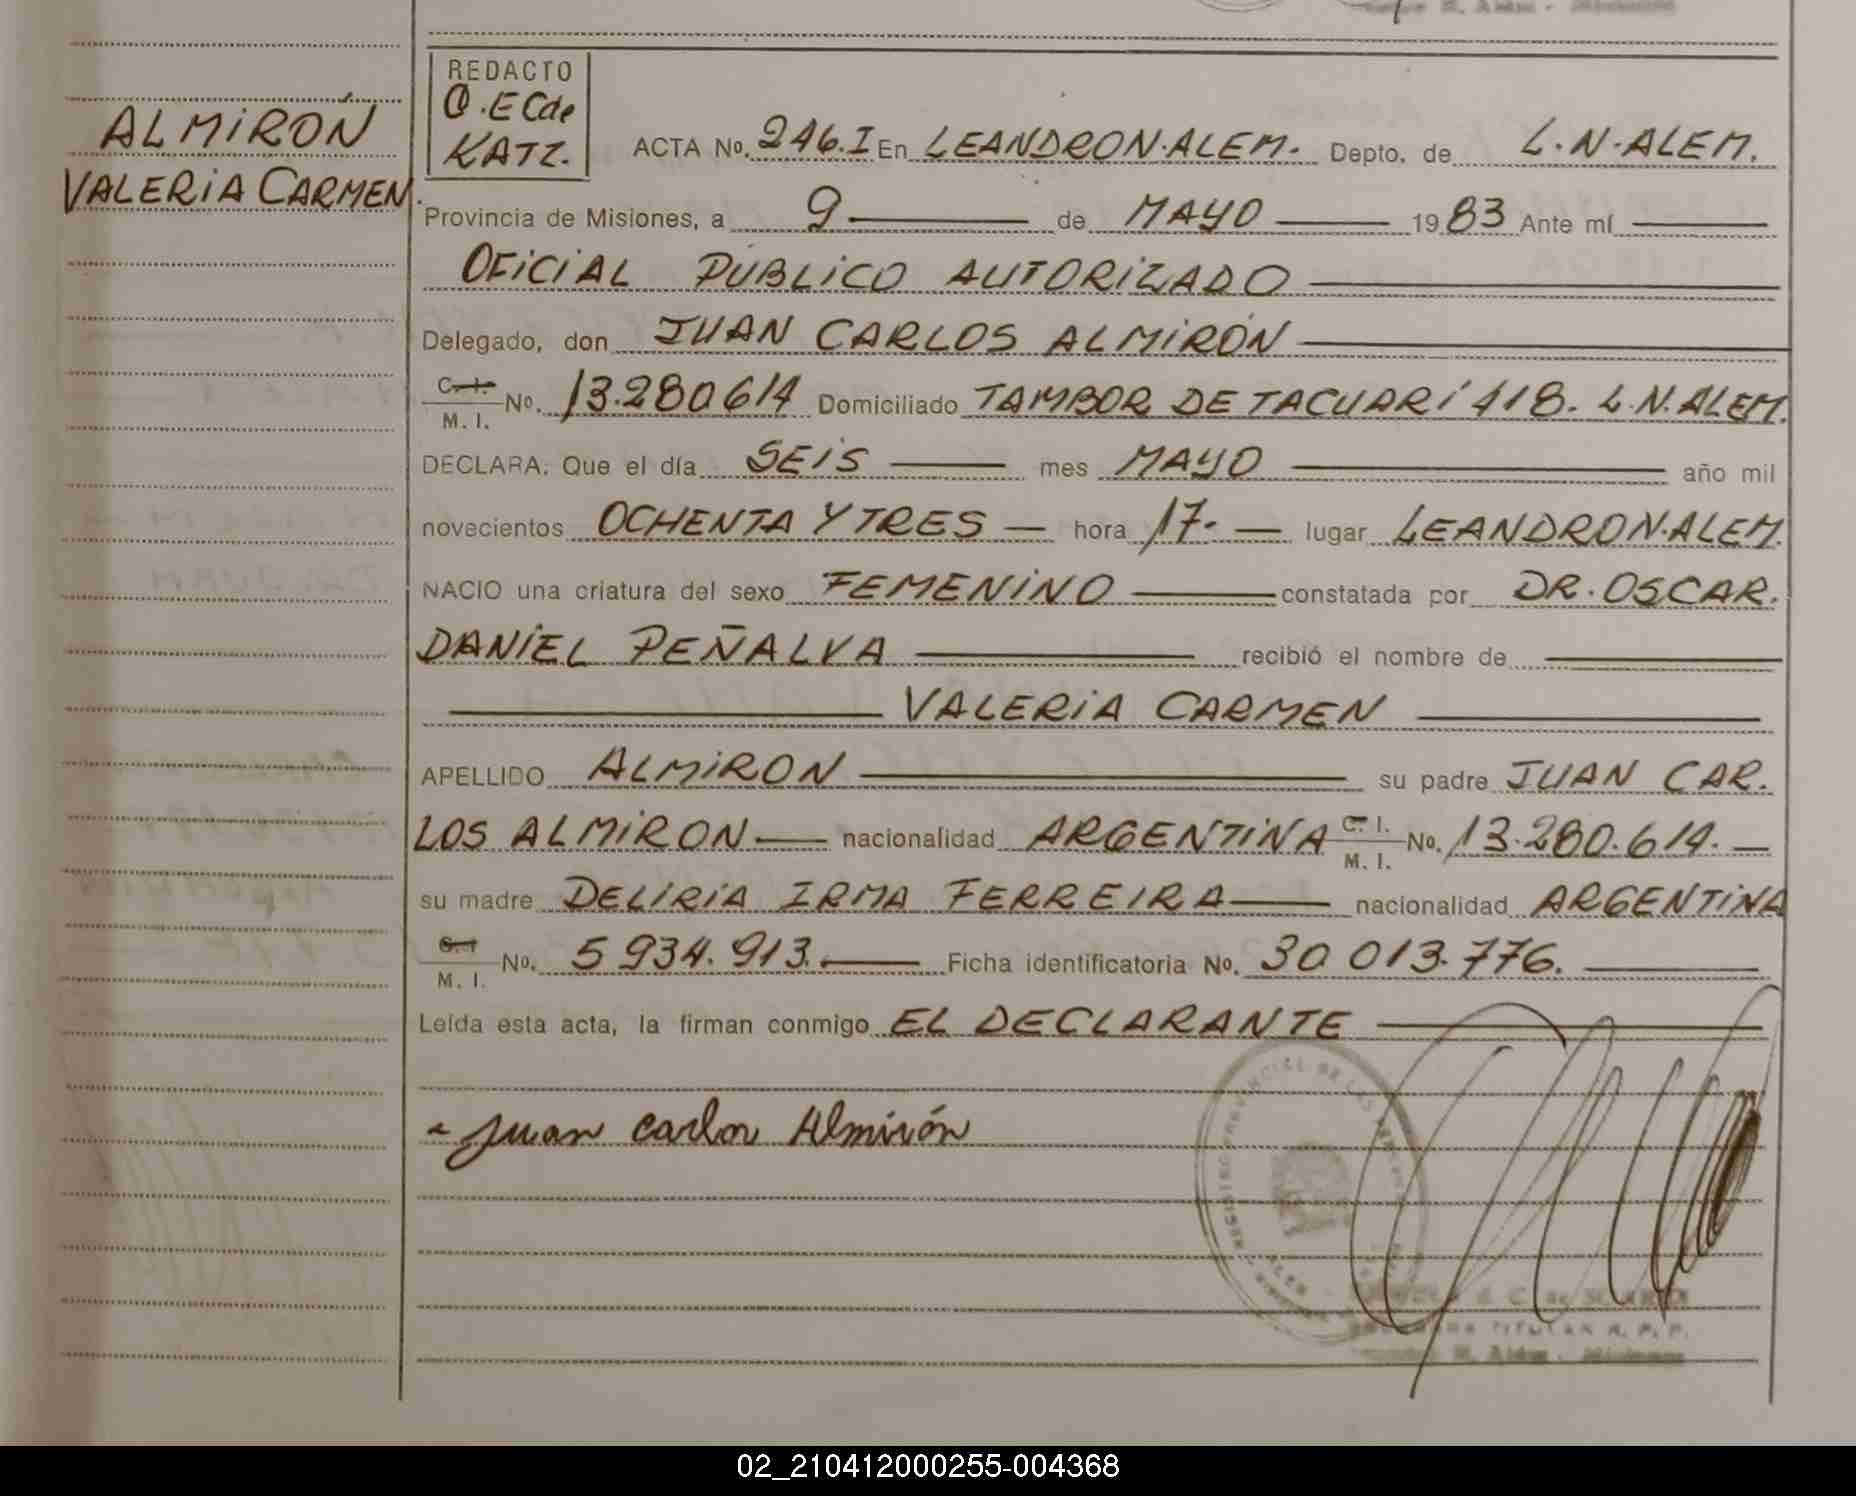 ALMIRÓN
VALERIA CARMEN
REDACTO
O.E Cde
KATZ.
ACTA No. 246.I En LEANDRO N. ALEM. Depto. de L.N. ALEM.
Provincia de Misiones, a 9 de MAYO 1983 Ante mí
OFICIAL PUBLICO AUTORIZADO
Delegado, don JUAN CARLOS ALMIRÓN
C. I.
M. I. No. 13.280614 Domiciliado TAMBOR DE TACUARÍ 418. L.N. ALEM.
DECLARA: Que el día SEIS mes MAYO año mil
novecientos OCHENTA Y TRES hora 17. lugar LEANDRO N. ALEM.
NACIO una criatura del sexo FEMENINO constatada por DR. OSCAR.
DANIEL PEÑALVA recibió el nombre de
VALERIA CARMEN
APELLIDO ALMIRON su padre JUAN CAR.
LOS ALMIRON nacionalidad ARGENTINA C. I. M. I. No. 13.280.614.
su madre DELIRIA IRMA FERREIRA nacionalidad ARGENTINA
C. I
M. I. No. 5 934.913. Ficha identificatoria No. 30 013.776.
Leída esta acta, la firman conmigo EL DECLARANTE
Juan Carlos Almirón
TITULAR R. P. P.
N. Alem - Misiones
02_210412000255-004368